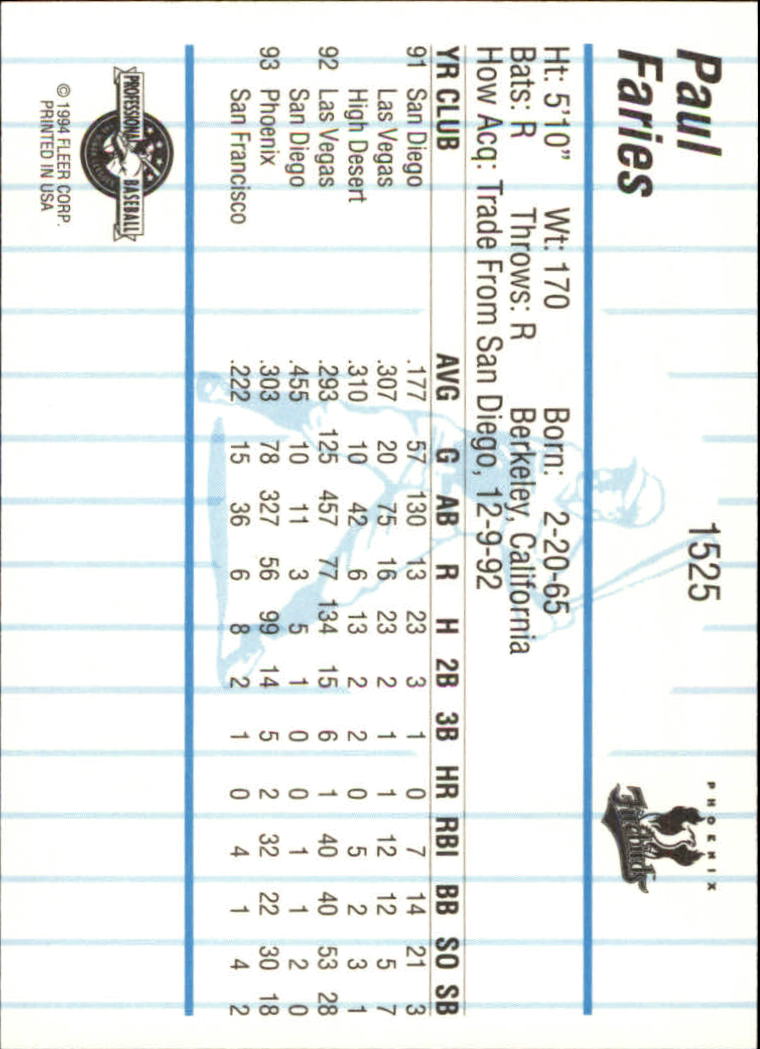 Paul
Faries
1525
PHOENIX
Firebirds
Ht: 5'10" Wt: 170 Born: 2-20-65
Bats: R Throws: R Berkeley, California
How Acq: Trade From San Diego, 12-9-92
YR CLUB AVG G AB R H 2B 3B HR RBI BB SO SB
91 San Diego .177 57 130 13 23 3 1 0 7 14 21 3
Las Vegas .307 20 75 16 23 2 1 1 12 12 5 7
High Desert .310 10 42 6 13 2 2 0 5 2 3 1
92 Las Vegas .293 125 457 77 134 15 6 1 40 40 53 28
San Diego .455 10 11 3 5 1 0 0 1 1 2 0
93 Phoenix .303 78 327 56 99 14 5 2 32 22 30 18
San Francisco .222 15 36 6 8 2 1 0 4 1 4 2
PROFESSIONAL BASEBALL
© 1994 FLEER CORP.
PRINTED IN USA